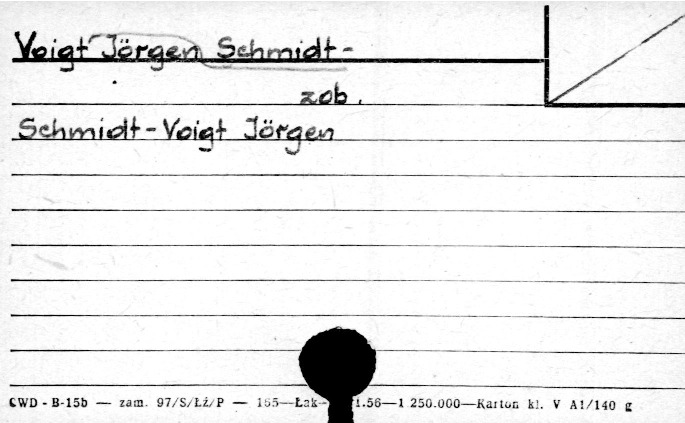 Voigt Jörgen Schmidt-
zob.
Schmidt-Voigt Jörgen
CWD - B-15b — zam. 97/S/Łź/P — 165—Łak- 1.56—1 250.000—Karton kl. V A1/140 g